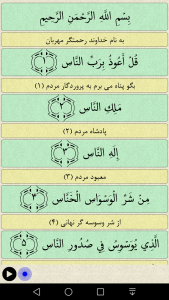 بِسْمِ اللَّهِ الرَّحْمَنِ الرَّحِيمِ
به نام خداوند رحمتگر مهربان
قُلْ أَعُوذُ بِرَبِّ النَّاسِ ﴿۱﴾
بگو پناه می برم به پروردگار مردم (۱)
مَلِكِ النَّاسِ ﴿۲﴾
پادشاه مردم (۲)
إِلَهِ النَّاسِ ﴿۳﴾
معبود مردم (۳)
مِنْ شَرِّ الْوَسْوَاسِ الْخَنَّاسِ ﴿۴﴾
از شر وسوسه گر نهانی (۴)
الَّذِي يُوَسْوِسُ فِي صُدُورِ النَّاسِ ﴿۵﴾